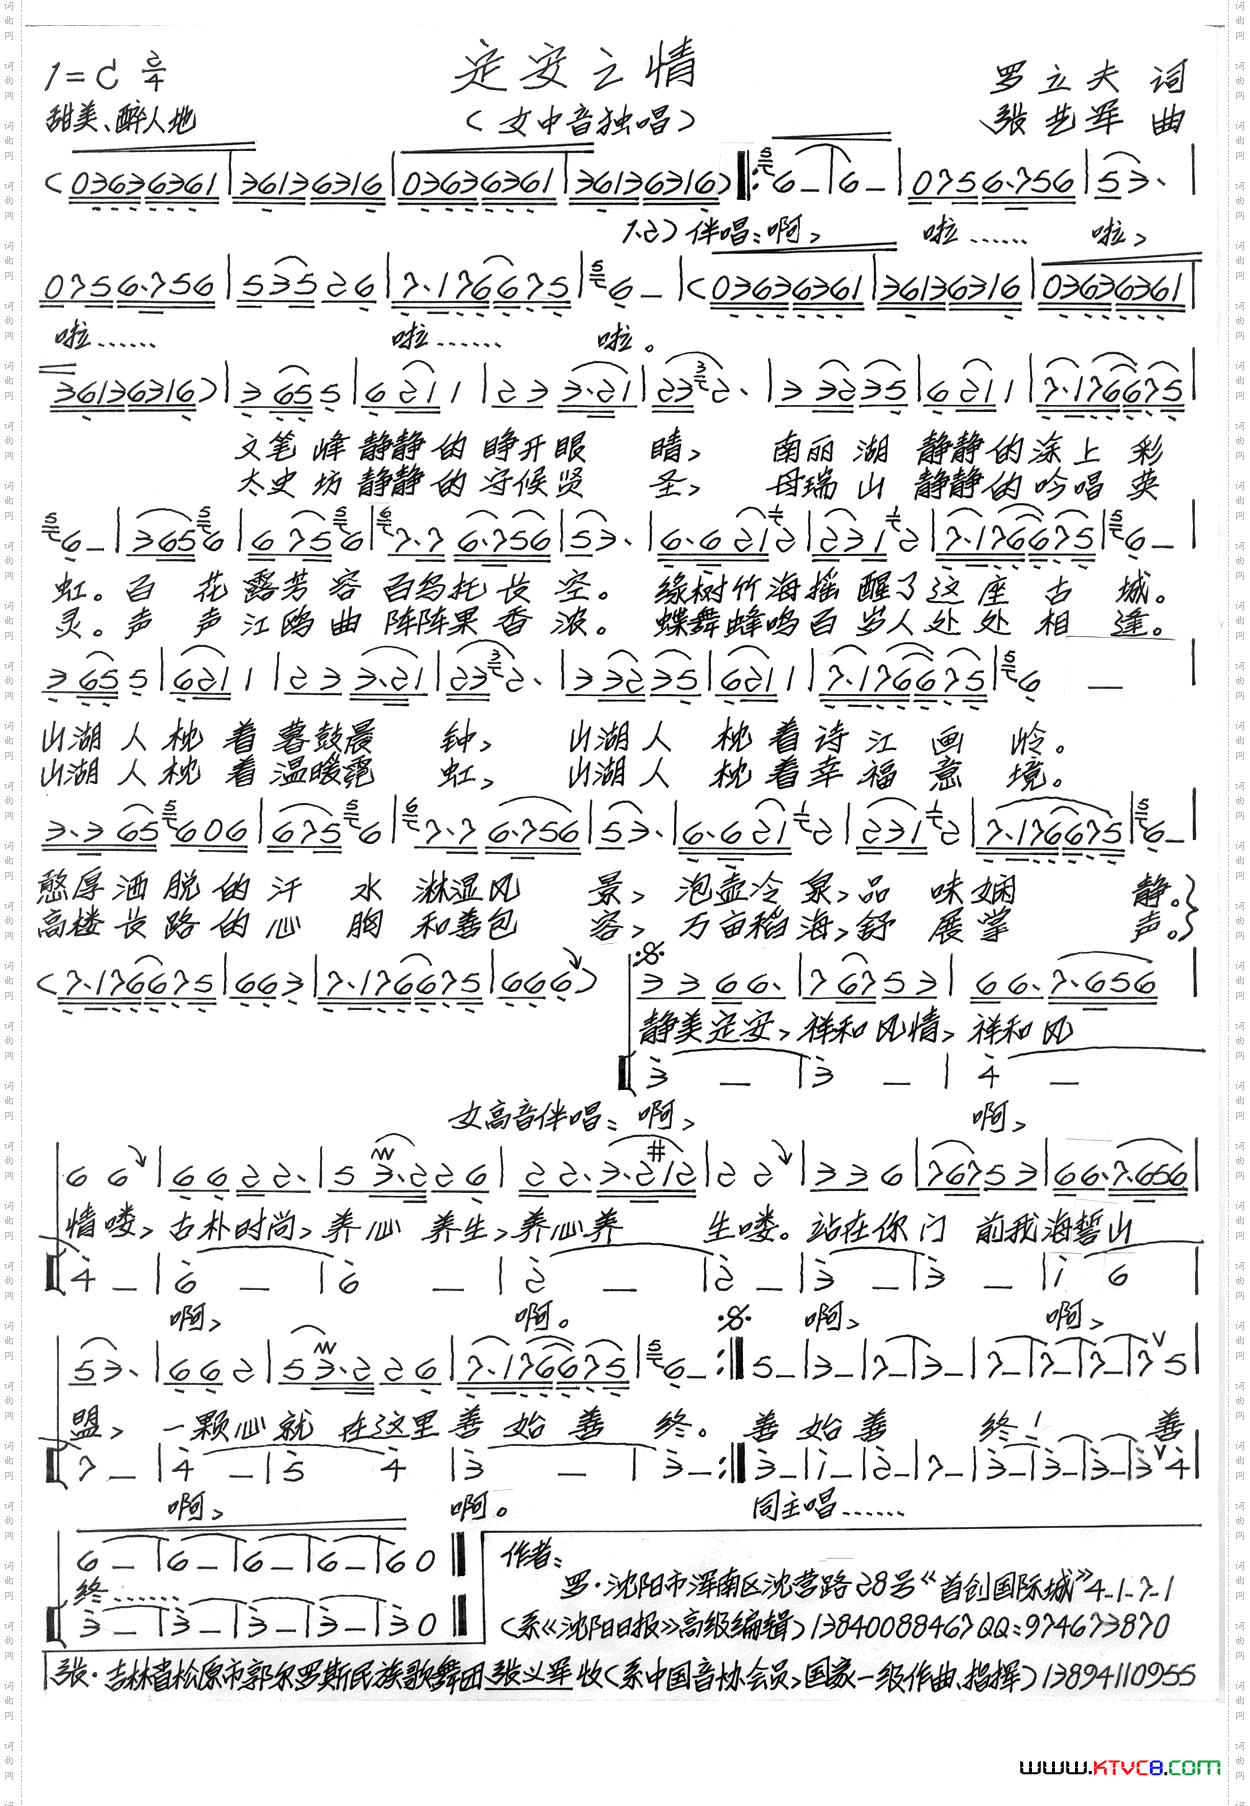 定安之情
1=C 2/4
罗立夫 词
甜美、醉人地
(女中音独唱)
张艺军 曲
(03636361|36136316|03636361|36136316)‖:6–|6–|0756·756|53·|
1.2)伴唱:啊, 啦…… 啦,
0756·756|53526|7·176675|6–|(03636361|36136316|03636361|
啦…… 啦…… 啦。
36136316)|3655|6211|233·21|232·|33235|6211|7·176675|
文笔峰静静的睁开眼 睛, 南丽湖 静静的涂上彩
太史坊静静的守候贤 圣, 母瑞山 静静的吟唱英
6–|3656|6756|7·76·756|53·|6·6212|2312|7·176675|6–|
虹。百 花露芳容 百鸟托长空。 缘树竹海摇醒了这座古 城。
灵。声 声江鸥曲 阵阵果香浓。 蝶舞蜂鸣百岁人处处相 逢。
3655|6211|233·21|232·|33235|6211|7·176675|6 –
山湖人枕着暮鼓晨 钟, 山湖人 枕着诗江画 岭。
山湖人枕着温暖霓 虹, 山湖人 枕着幸福意 境。
3·365606|6756|7·76·756|53·|6·6212|2312|7·176675|6–|
憨厚洒脱的汗 水 淋湿风 景, 泡壶冷泉,品 味娴 静。
高楼长路的心 胸 和善包 容, 万亩稻海,舒 展掌 声。
(7·176675|663|7·176675|666)
3366·|76753|66·7·656|
静美定安,祥和风情,祥和风
3–|3–|4–
女高音伴唱:啊, 啊,
66|6622·|53·226|22·3·212|22|336|76753|66·7·656|
情喽,古朴时尚,养心 养生,养心养 生喽。站在你门 前我海誓山
4–|6–|6–|2–|2–|3–|3–|i6|
啊, 啊。 啊, 啊,
53·|662|53·226|7·176675|6–:‖5–|3–|7–|3–|7–|7–|7–|75|
盟, 一颗心就 在这里善始善 终。 善始善 终! 善
7–|4–|54|3–|3–:‖3–|i–|2–|7–|3–|3–|3–|34|
啊, 啊。 同主唱……
6–|6–|6–|6–|60‖
终……
3–|3–|3–|3–|30‖
作者:
罗·沈阳市浑南区沈营路28号《首创国际城》4-1-7-1
(系《沈阳日报》高级编辑)13840088467QQ:974673870
张·吉林省松原市郭尔罗斯民族歌舞团张义军收(系中国音协会员,国家一级作曲、指挥)13894110955
www.KTVC8.com